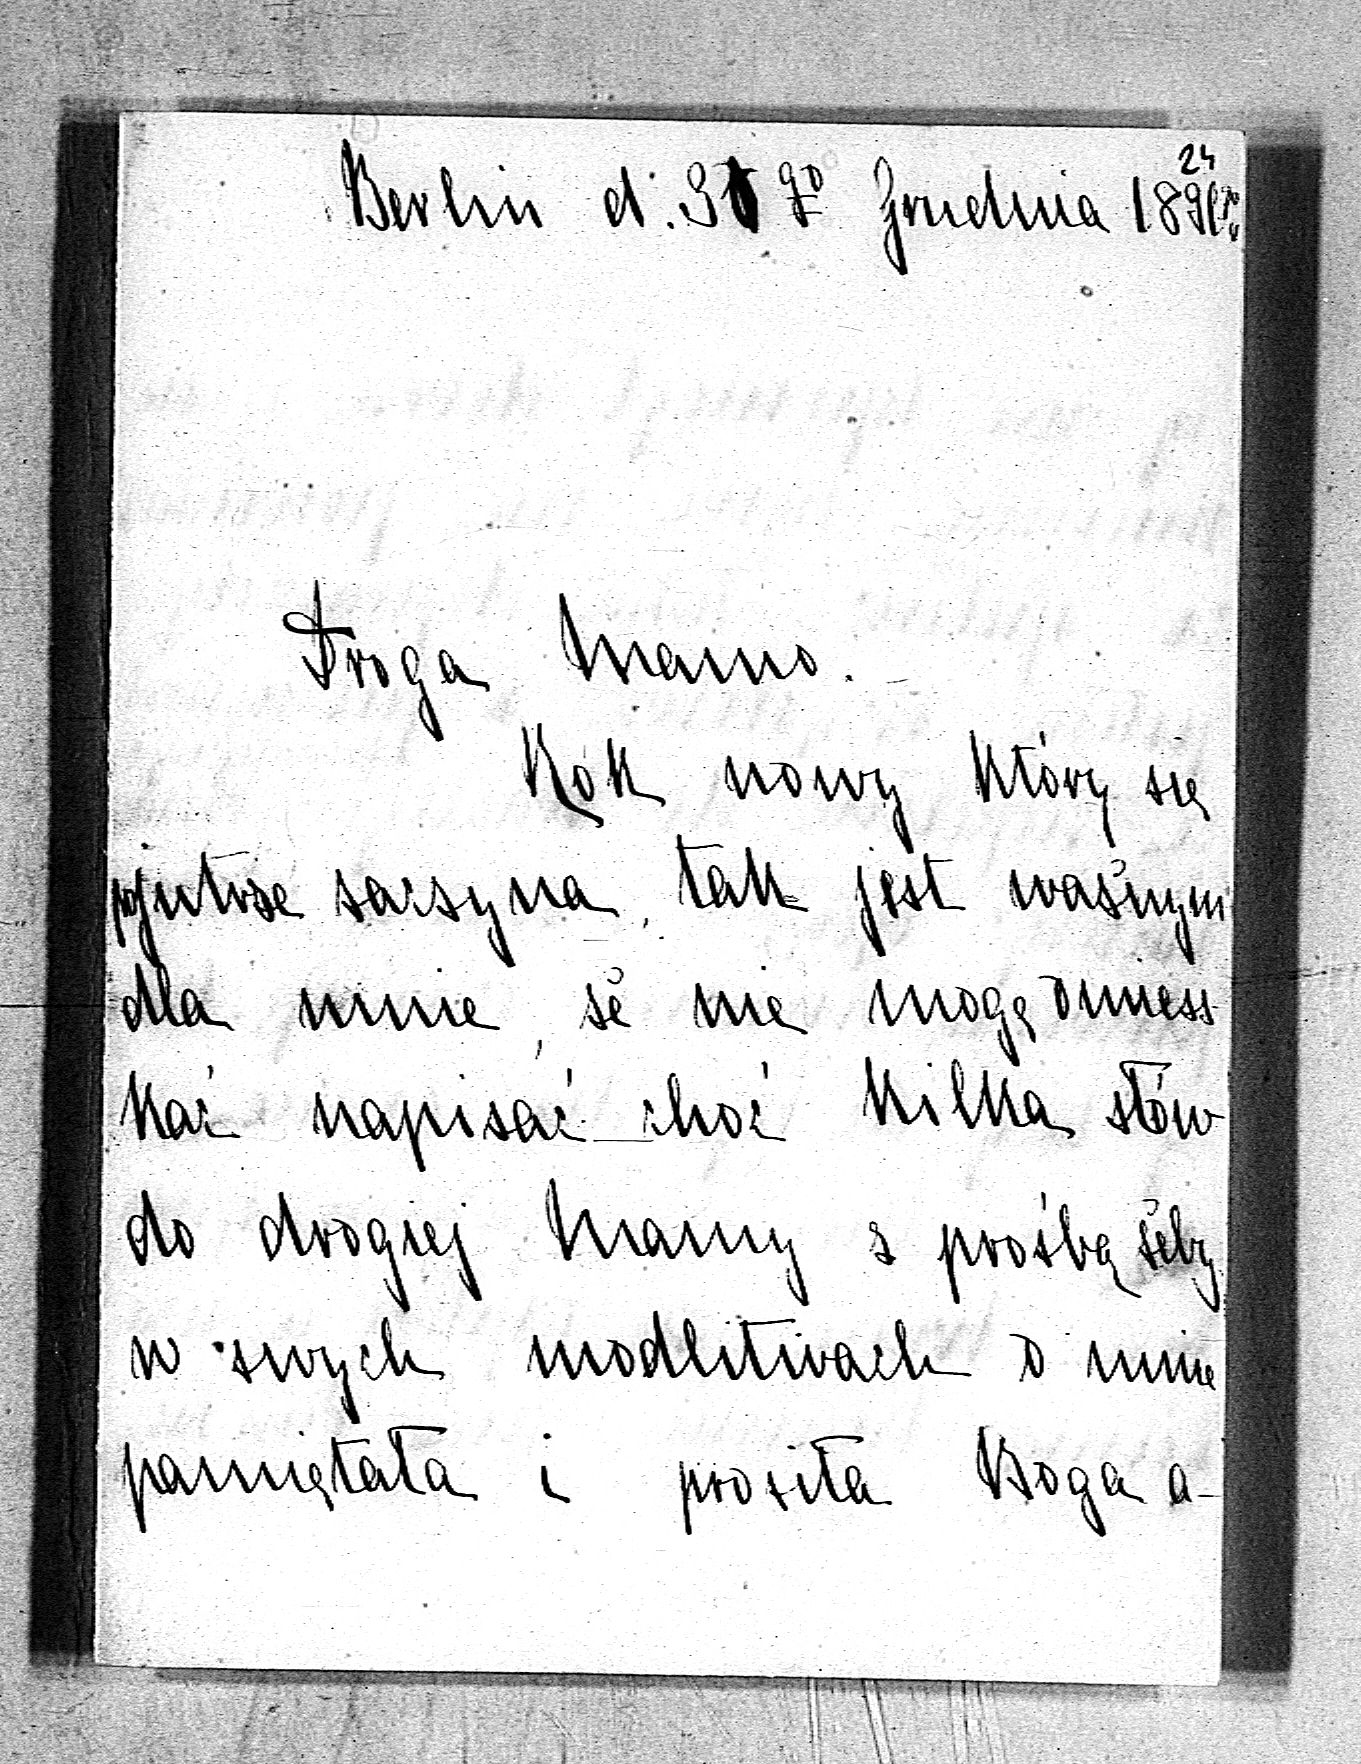 24
Berlin d. 30 go Grudnia 1891r.
Droga Mamo.
Rok nowy który się
pojutrze zaczyna, tak jest ważnym
dla mnie, że nie mogę omiesz
kać napisać choć kilka słów
do drogiej Mamy z prośbą żeby
w swych modlitwach o mnie
pamiętała i prosiła Boga a-